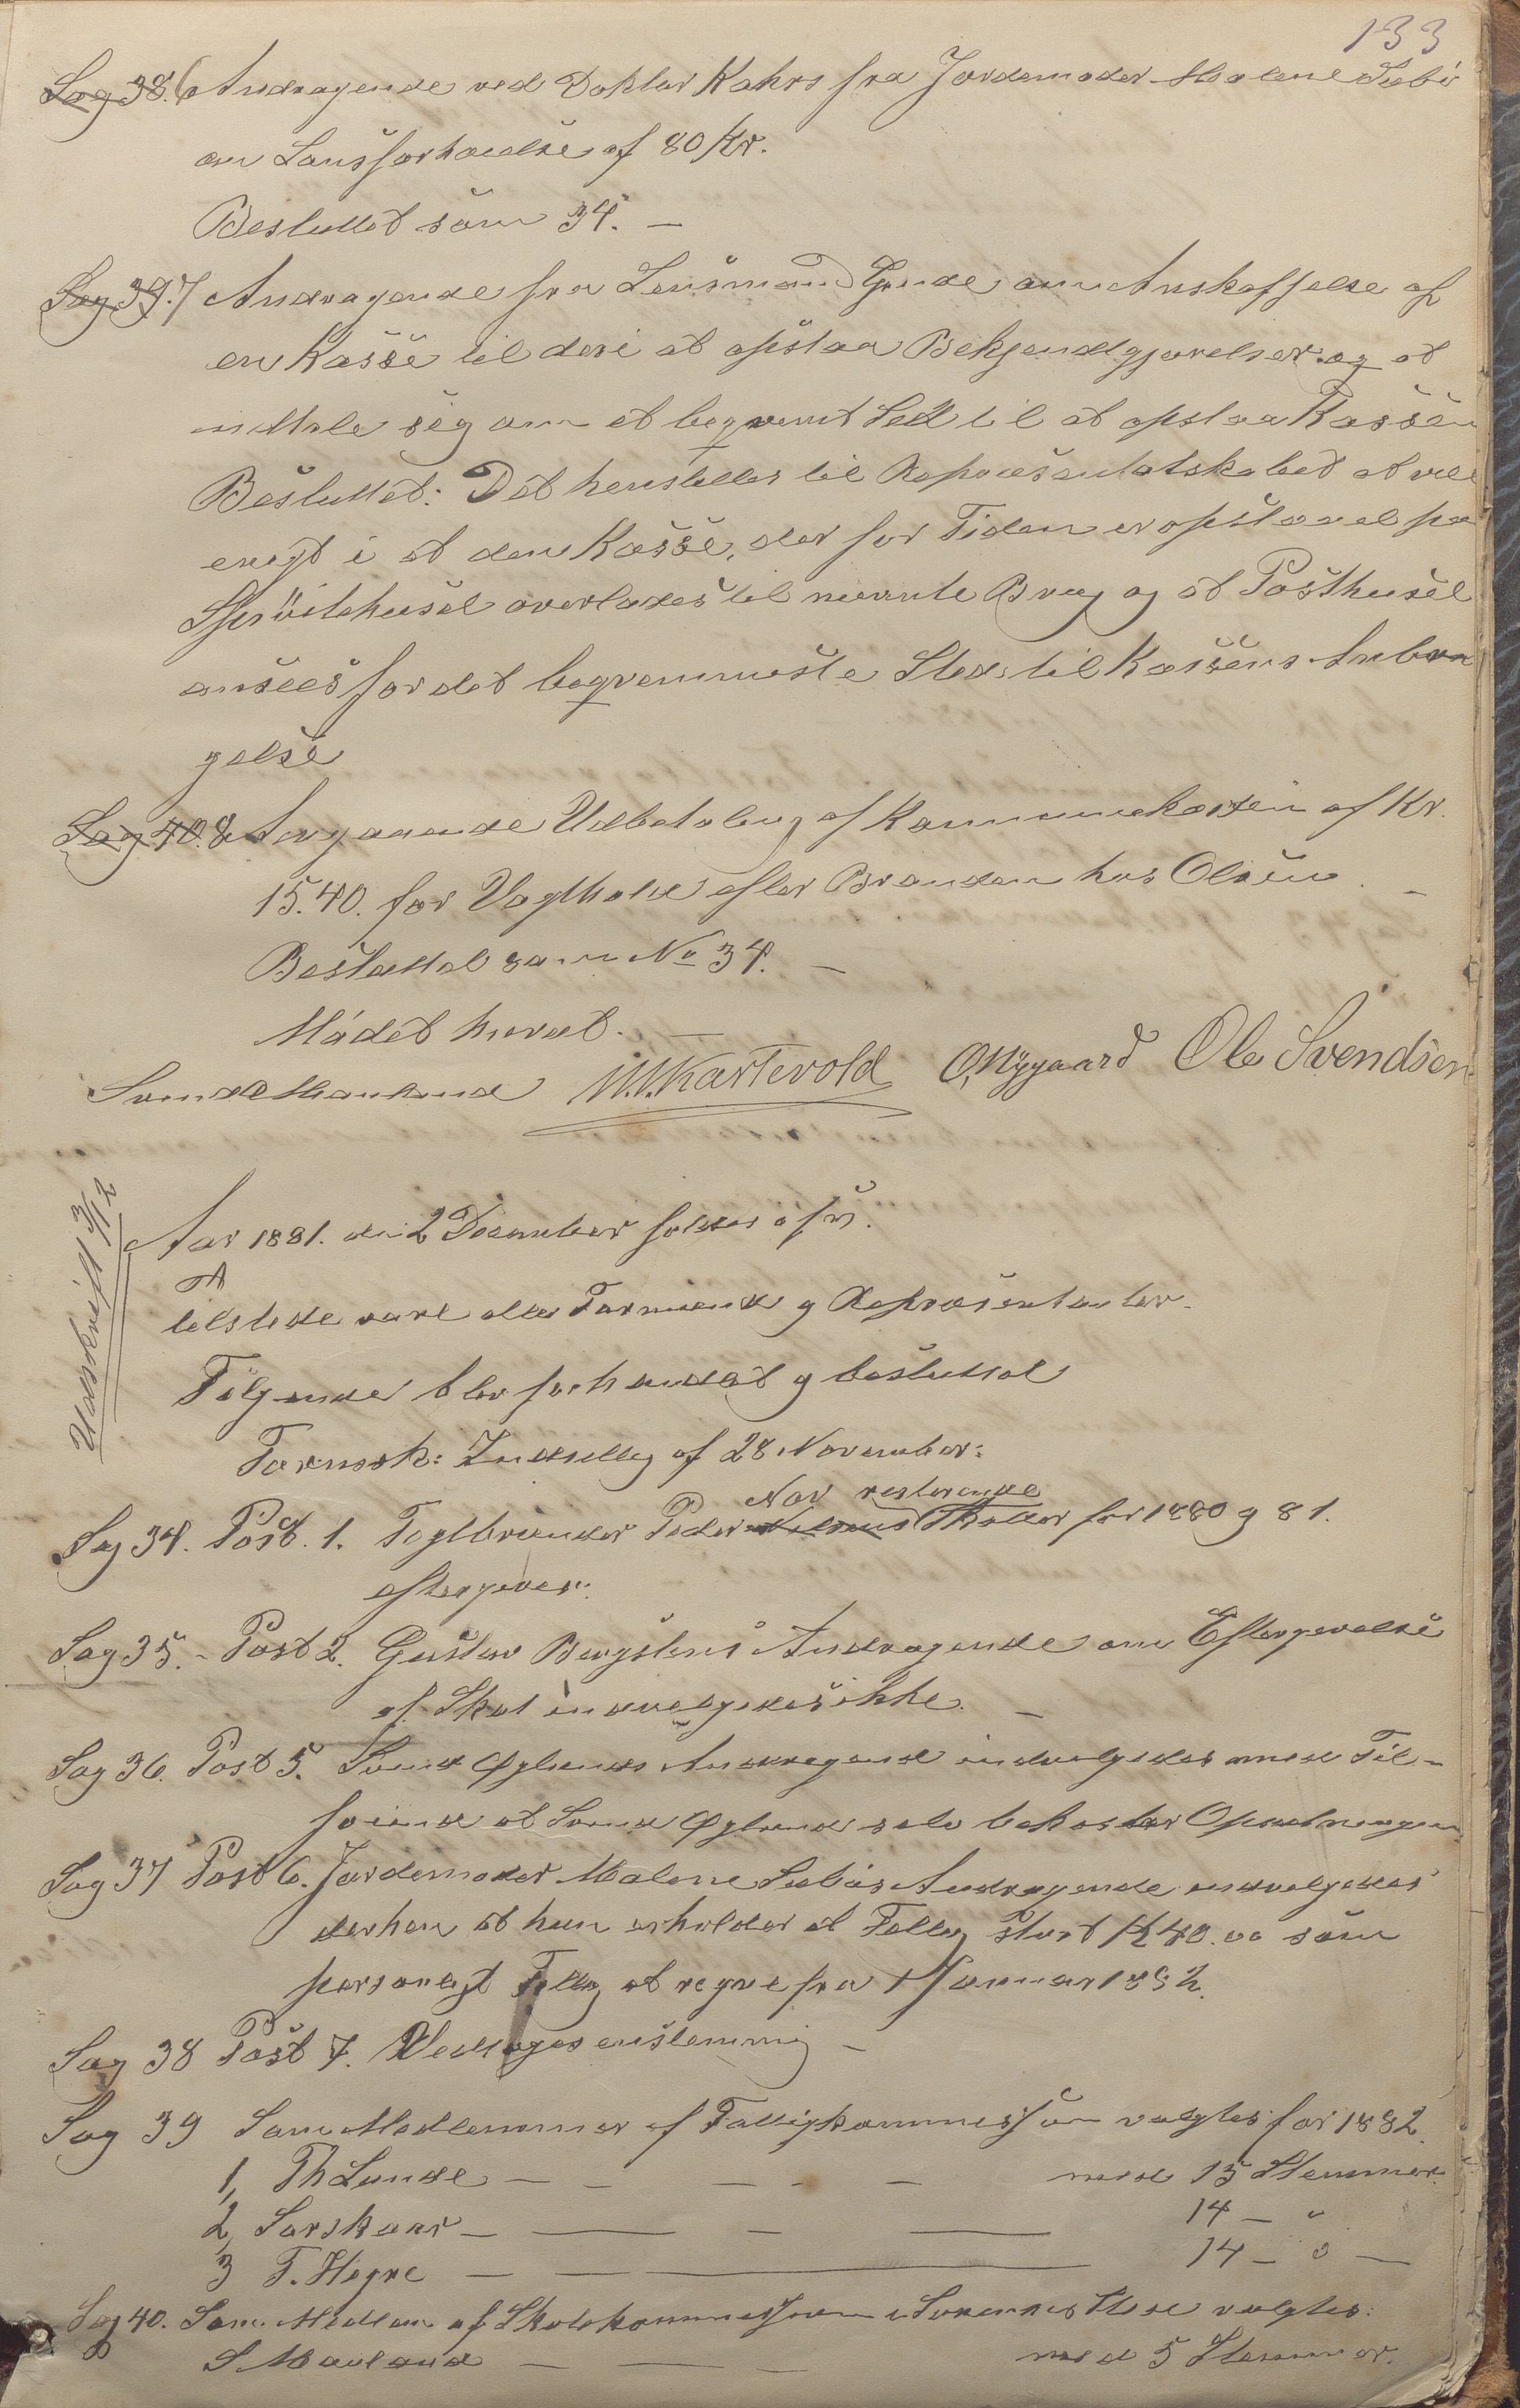 133
Sag 38. 6 Andragende ved Doktor Kahrs fra Jordemoder Malene Sebø
om Lønsforhøielse af 80 Kr.
Besluttet som 34. —
Sag 39. 7 Andragende fra Lensmand Gjende om Anskaffelse af
en Kasse til deri at opslaa Bekjendtgjørelser og at
udtale sig om et beqvemt Sted til at opslaa Kassen
Besluttet: Det henstilles til Repræsentatskabet at være
enigt i at den Kasse, der for Tiden er opslaael paa
Sprøitehuset overlades til nævnte Brug og at Posthuset
ansees for det beqvemmeste Sted til Kassens Anbrin
gelse
Sag 40. 8 Angaaende Udbetaling af Kommunekassen af Kr.
15.40. for Vagthold efter Branden hos Olsen. —
Besluttet som No 34. —
Mødet hævet. —
Svend Mauland M. Kartevold O. Nygaard Ole Svendsen
Udskrift 3/12
Aar 1881. den 2 December holdes
tilstede vare alle Formænd og Repræsentanter.
Følgende blev forhandlet og besluttet
Formsk: Indstilling af 28 November:
Sag 34. Post. 1. Teglbrænder Peder resterende Skatter for 1880 og 81.
eftergives.
Sag 35. - Post 2. Gustav Bergstens Andragende om Eftergivelse
af Skat indvilgedes ikke. —
Sag 36. Post 5. Svend Øglends Andragende indvilgedes med Til-
føiende at Svend Øglend selv bekoster Opsætningen
Sag 37 Post 6. Jordemoder Malene Sebøs Andragende indvilgedes
derhen at hun erholder et Tillæg stort Kr 40.00 som
personligt Tillæg at regne fra 1 Januar 1882.
Sag 38 Post 7. Vedtoges enstemmig —
Sag 39 Som Medlemmer af Fattigkommissjon valgtes for 1882.
1, Th Lunde — — — — med 15 Stemmer.
2, Sorskaar — — — — 14 — "
3 T. Hegre — — — 14 — " —
Sag 40. Som Medlem af Skolekommissjonen i Sørennes Sted valgtes:
S Mauland — — — med 5 Stemmer.